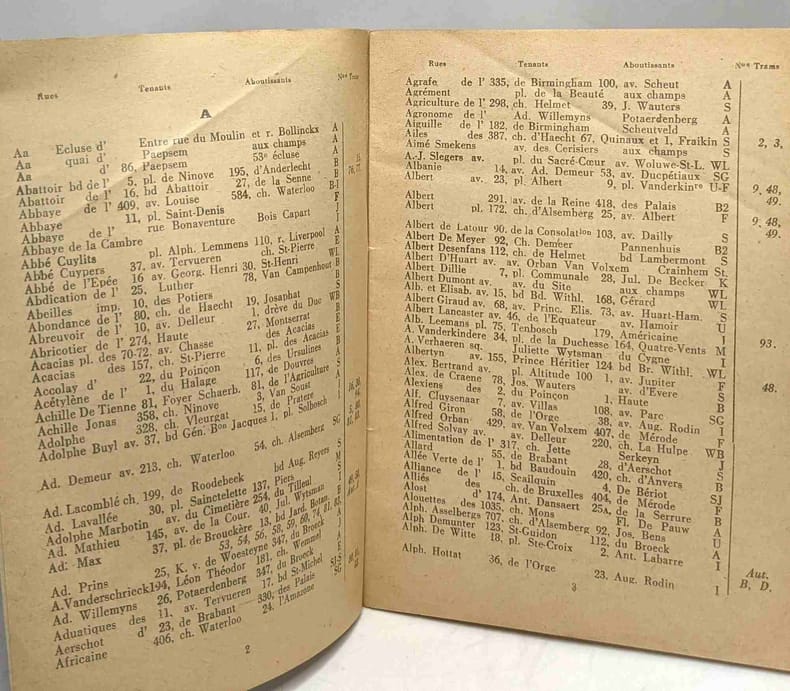 Rues Tenants Aboutissants Nos Trams
A
Aa Ecluse d' Entre rue du Moulin et r. Bollinckx A
Aa quai d' Paepsem aux champs A
Aa d' 86, Paepsem 53e écluse A
Abattoir bd de l' 5, pl. de Ninove 195, d'Anderlecht B
Abattoir de l' 16, bd Abattoir 27, de la Senne B
Abbaye de l' 409, av. Louise 584, ch. Waterloo B-I
Abbaye 11, pl. Saint-Denis F
Abbaye de l' rue Bonaventure Bois Capart J
Abbaye de la Cambre I
Abbé Cuylits pl. Alph. Lemmens 110, r. Liverpool A
Abbé Cuypers 37, av. Tervueren ch. St-Pierre E
Abbé de l'Epée 16 av. Georg. Henri 30, St-Henri WL
Abdication de l' 25, Luther 78, Van Campenhout B
Abeilles imp. 10, des Potiers B
Abondance de l' 80, ch. de Haecht 19, Josaphat S
Abreuvoir de l' 10, av. Delleur 1, drève du Duc WB
Abricotier de l' 274, Haute 27, Montserrat B
Acacias pl. des 70-72, av. Chasse des Acacias E
Acacias des 157, ch. St-Pierre 11, pl. des Acacias E
Accolay d' 22, du Poinçon 6, des Ursulines B
Acétylène de l' 1, du Halage 117, de Douvres A
Achille De Tienne 81, Foyer Schaerb. 81, de l'Agriculture S
Achille Jonas 358, ch. Ninove 3, Van Soust
Adolphe 328, ch. Vleurgat 15, de Praetere I
Adolphe Buyl av. 37, bd Gén. Bon Jacques 1, pl. Solbosch I
Ad. Demeur av. 213, ch. Waterloo 54, ch. Alsemberg SG
Ad. Lacomblé ch. 199, de Roodebeek bd Aug. Reyers S
Ad. Lavallée 30, pl. Sainctelette 137, Piers M
Adolphe Marbotin av. du Cimetière 254, du Tilleul S
Ad. Mathieu 145, av. de la Cour. 40, Jul. Wytsman I
Ad. Max 37, pl. de Brouckère 13, bd Jard. Botan. B
53, 54, 56, 58, 59, 60, 74, 81, 83,
Ad. Prins 25, K. v. de Woesteyne 347, du Broeck
A. Vanderschrieck 194, Léon Théodor 181, ch. Wemmel J
Ad. Willemyns 26, Potaerdenberg 347, du Broeck A
Aduatiques des 11, av. Tervueren 17, bd St-Michel E
Aerschot d' 23, de Brabant 330, des Palais
Africaine 406, ch. Waterloo 24, l'Amazone SG
2
Rues Tenants Aboutissants Nos Trams
Agrafe de l' 335, de Birmingham 100, av. Scheut A
Agrément pl. de la Beauté aux champs A
Agriculture de l' 298, ch. Helmet 39, J. Wauters S
Agronome de l' Ad. Willemyns Potaerdenberg A
Aiguille de l' 182, de Birmingham Scheutveld A
Ailes des 387, ch. d'Haecht 67, Quinaux et 1, Fraikin S 2, 3,
Aimé Smekens av. des Cerisiers aux champs S
A.-J. Slegers av. pl. du Sacré-Cœur av. Woluwe-St-L. WL
Albanie 14, av. Ad. Demeur 53, av. Ducpétiaux SG
Albert av. 23, pl. Albert 9, pl. Vanderkinre U-F 9, 48,
49.
Albert 291, av. de la Reine 418, des Palais B2
Albert pl. 172, ch. d'Alsemberg 25, av. Albert F 9, 48,
49.
Albert de Latour 90, de la Consolation 103, av. Dailly S
Albert De Meyer 92, Ch. Demeer Pannenhuis B2
Albert Desenfans 112, ch. de Helmet bd Lambermont S
Albert D'Huart av. av. Orban Van Volxem Crainhem St.
Albert Dillie 7, pl. Communale 28, Jul. De Becker K
Albert Dumont av. av. du Site aux champs WL
Alb. et Elisab. av. 15, bd Bd. Withl. 168, Gérard WL
Albert Giraud av. 68, av. Princ. Elis. 73, av. Huart-Ham. S
Albert Lancaster av. 46, de l'Equateur av. Hamoir U
Alb. Leemans pl. 75, Tenbosch 179, Américaine I 93.
A. Vanderkindere 34, pl. de la Duchesse 164, Quatre-Vents M
A. Verhaeren sq. Juliette Wytsman du Cygne I
Albertyn av. 155, Prince Héritier 124, bd Br. Withl. WL
Alex. Bertrand av. pl. Altitude 100 1, av. Jupiter F 48.
Alex. de Craene 78, Jos. Wauters av. d'Evere S
Alexiens des 2, du Poinçon 1, Haute B
Alf. Cluysenaar 7, av. Villas 108, av. Parc SG
Alfred Giron 58, de l'Orge 38, av. Aug. Rodin I
Alfred Orban 429, av. Van Volxem 407, de Mérode F
Alfred Solvay av. av. Delleur 220, ch. La Hulpe WB
Alimentation de l' 317, ch. Jette Serkeyn J
Allard 55, de Brabant 28, d'Aerschot S
Allée Verte de l' 1, bd Baudouin 420, ch. d'Anvers B
Alliance de l' 15, Scailquin 4, De Bériot SJ
Alliés des ch. de Bruxelles 404, de Mérode F
Alost d' 174, Ant. Dansaert 25a, de la Serrure B
Alouettes des 1035, ch. Mons Fl. De Pauw A
Alph. Asselbergs 707, ch. d'Alsemberg 92, Jos. Bens U
Alph. Demunter 123, St-Guidon 112, du Broeck A
Alph. De Witte 18, pl. Ste-Croix 2, Ant. Labarre I Aut.
B, D.
Alph. Hottat 36, de l'Orge 23, Aug. Rodin I
3